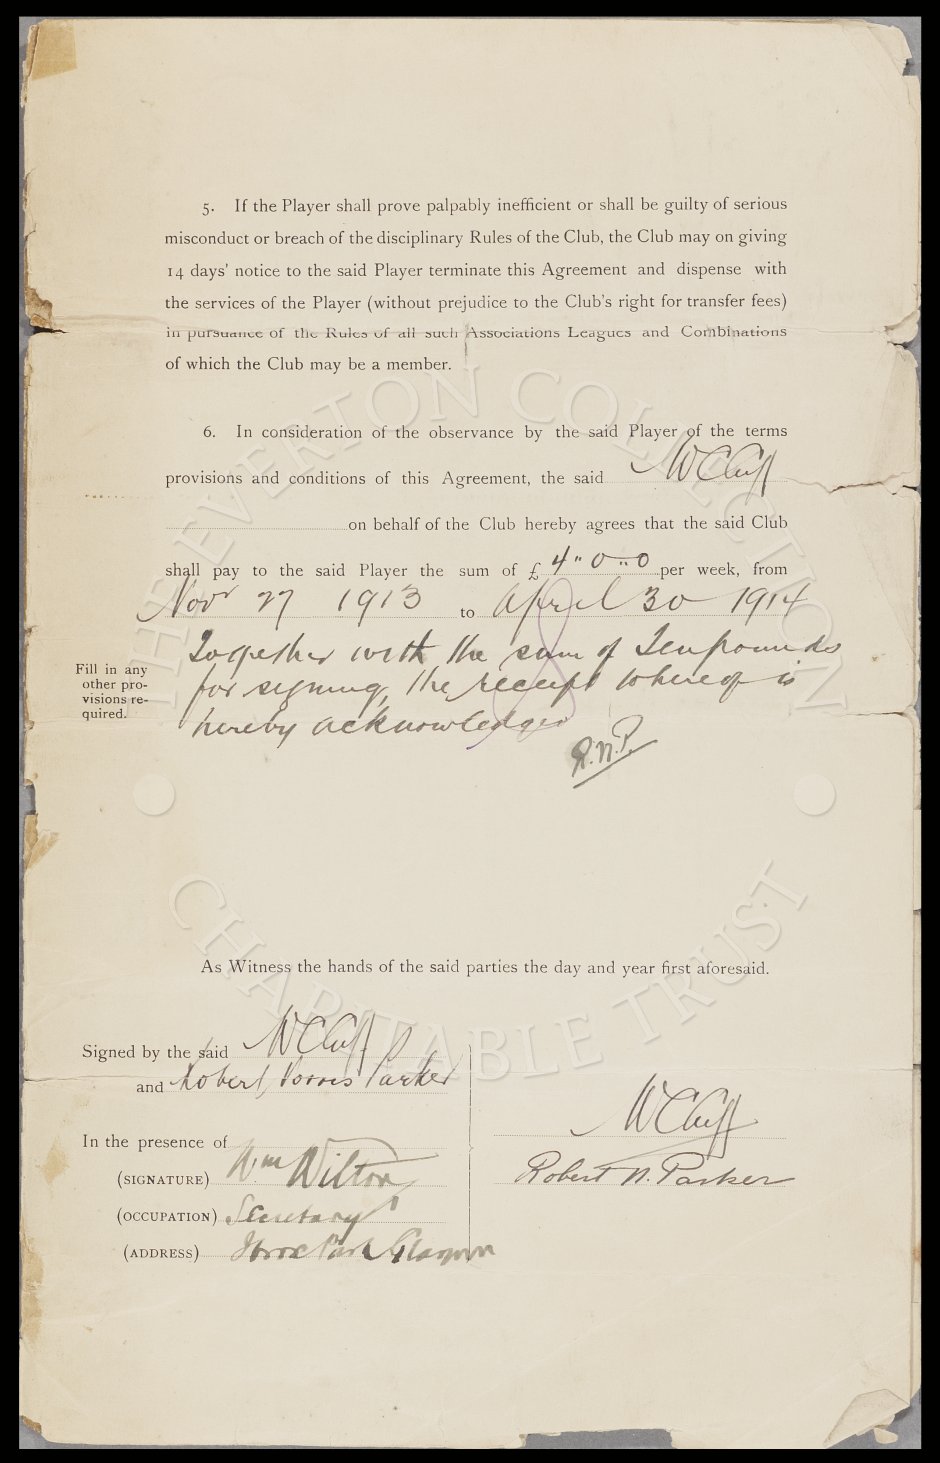 5. If the Player shall prove palpably inefficient or shall be guilty of serious
misconduct or breach of the disciplinary Rules of the Club, the Club may on giving
14 days' notice to the said Player terminate this Agreement and dispense with
the services of the Player (without prejudice to the Club's right for transfer fees)
in pursuance of the Rules of all such Associations Leagues and Combinations
of which the Club may be a member.
6. In consideration of the observance by the said Player of the terms
provisions and conditions of this Agreement, the said W C Cuff
on behalf of the Club hereby agrees that the said Club
shall pay to the said Player the sum of £ 4 " 0 " 0 per week, from
Novr 27 1913 to April 30 1914
Together with the sum of Ten pounds
for signing, the receipt whereof is
hereby acknowledged
R.N.P.
Fill in any
other pro-
visions re-
quired.
As Witness the hands of the said parties the day and year first aforesaid.
Signed by the said W C Cuff
and Robert Norris Parker
In the presence of
(SIGNATURE) Wm Wilton
(OCCUPATION) Secretary
(ADDRESS) Ibrox Park Glasgow
W C Cuff
Robert N. Parker
THE EVERTON COLLECTION
CHARITABLE TRUST